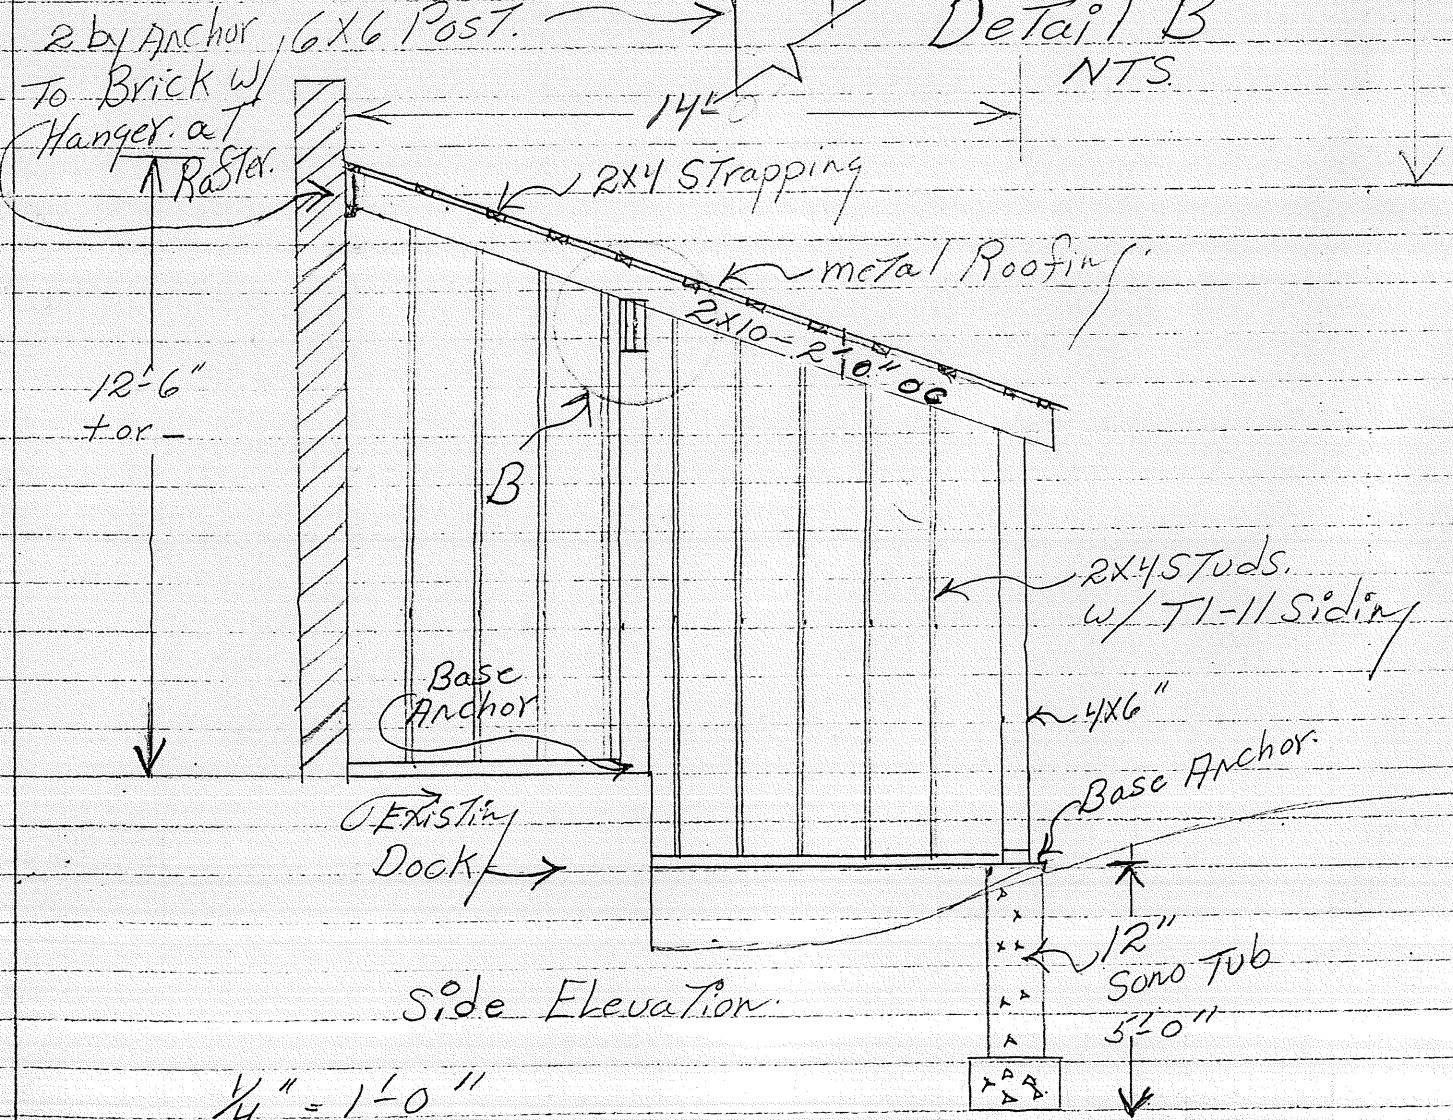 2 by Anchor
To Brick w/
Hanger. at
Rafter.
6X6 Post.
Detail B
NTS.
14'-0
2X4 Strapping
metal Roofing
2X10 - 2'-0" OC
12'-6"
+ or -
B
2X4 Studs.
w/ T1-11 Siding
Base
Anchor
4X6"
Base Anchor.
Existing
Dock
12"
Sono Tub
5'-0"
Side Elevation.
1/4" = 1'-0"